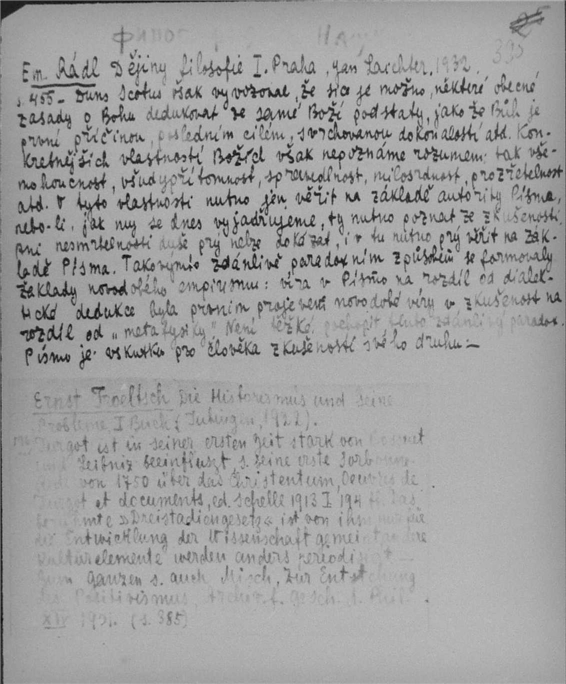 Em. Rádl Dějiny filosofie I. Praha, Jan Laichter, 1932.
s. 455 – Duns Scotus však vyvozoval, že sice je možno, některé obecné
zásady o Bohu dedukovat ze samé Boží podstaty, jako že Bůh je
první příčinou, posledním cílem, svrchovanou dokonalostí atd. Kon-
kretnějších vlastností Božích však nepoznáme rozumem: tak vše-
mohoucnost, všudypřítomnost, spravedlnost, milosrdnost, prozřetelnost
atd. V tyto vlastnosti nutno jen věřit na základě autority Písma,
nebo-li, jak my se dnes vyjadřujeme, ty nutno poznat ze zkušenosti.
Ani nesmrtelnosti duše prý nelze dokázat, i v tu nutno prý věřit na zák-
ladě Písma. Takovýmto zdánlivě paradoxním způsobem se formovaly
základy novodobého empirismu: víra v Písmo na rozdíl od dialek-
tické dedukce byla prvním projevem novodobé víry v zkušenost na
rozdíl od „metafysiky" Není těžké pochopit tento zdánlivý paradox.
Písmo je vskutku pro člověka zkušeností svého druhu –
Ernst Troeltsch Die Historismus und seine
Probleme I Buch (Tubingen, 1922).
Turgot ist in seiner ersten Zeit stark von Bossuet
und Leibniz beeinfluszt s. seine erste Sorbonne-
rede von 1750 über das Christentum, Oeuvres de
Turgot et documents, ed. Schelle 1913 I 194 ff. Das
berühmte »Dreistadiengesetz« ist von ihm nur für
die Entwicklung der Wissenschaft gemeint andere
Kulturelemente werden anders periodisiert –
Zum ganzen s. auch Misch, Zur Entstehung
des Positivismus, Archiv. f. Gesch. d. Phil.
XIV 1901. (s. 385)